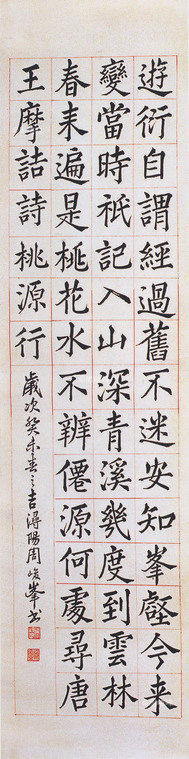 遊衍自謂經過舊不迷安知峯壑今来
變當時衹記入山深青溪幾度到雲林
春来遍是桃花水不辨僊源何處尋唐
王摩詰詩桃源行
歲次癸未春之吉潯陽周峻峯書